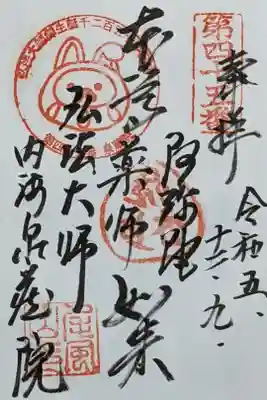 第四十五番
奉拝
令和五、
十二、九.
本尊 薬師
阿弥陀
如来
弘法大師
内海泉蔵院